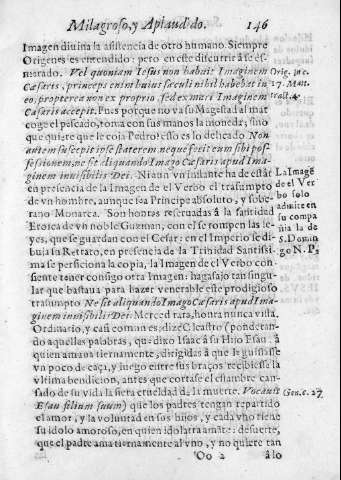 Milagroso, y Aplaudido. 146
Imagen diuina la asistencia de otro humano. Siempre
Origenes es entendido: pero en este discurrir à se es-
marado. Vel quoniam Iesus non habuit Imaginem
Cæsaris, princeps enim huius sæculi nihil habebat in
eo, propterea non ex proprio, sed ex mari Imaginem
Cæsaris accepit. Pues porque no va su Magestad al mar
coge el pescado, toma con sus manos la moneda; sino
que quiere que le coja Pedro? esso es lo delicado Non
autem suscepit ipse staterem neque fecit eum sibi pos-
sessionem, ne sit aliquando Imago Cæsaris apud Ima-
ginem inuisibilis Dei. Ni aun vn instante ha de estàr
en presencia de la Imagen de el Verbo el trasumpto
de vn hombre, aunque sea Principe absoluto, y sobe-
rano Monarca. Son honras reseruadas à la santidad
Eroica de vn noble Guzman, con el se rompen las le-
yes, que se guardan con el Cesar: en el Imperio se di-
buja la Retrato, en presencia de la Trinidad Santissi-
ma se perficiona la copia, la Imagen de el Verbo con
siente tener consigo otra Imagen: hagasajo tan singu-
lar que bastaua para hazer venerable este prodigioso
trasumpto Ne sit aliquando Imago Cæsaris apud Ima-
ginem inuisibilis Dei. Merced rara, honra nunca vista.
Ordinario, y casi comun es: dize Cleastro (ponderan-
do aquellas palabras, que dixo Isaac à su Hijo Esau. à
quien amaua tiernamente, dirigidas à que le guisasse
vn poco de caça, y luego entre sus braços recibiesse la
vltima bendicion, antes que cortase el estambre can-
sado de su vida la fiera crueldad de la muerte. Vocauit
Esau filium suum) que los padres tengan repartido
el amor, y la voluntad en sus hijos, y cada vno tiene
su idolo amoroso, en quien idolatra amāte: de suerte,
que el padre ama tiernamente al vno, y no quiere tan
Oo 2 à lo
Orig. in c.
17. Mat.
tract. 4.
La Imagē
de el Ver
bo solo
admite en
su compa
ñia la de
S. Domin
go N. P.
Gen. c. 27